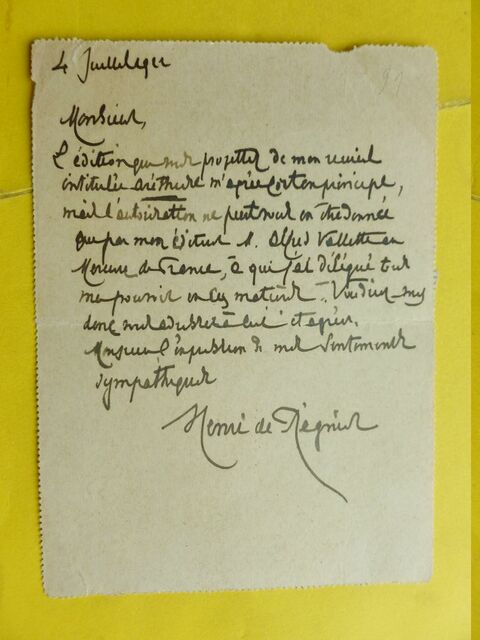 4 Juillet 1912
91
Monsieur,
L'édition que vous projettez de mon recueil
intitulée Aréthuse m'agrée fort en principe,
mais l'autorisation ne peut vous en être donnée
que par mon éditeur M. Alfred Vallette au
Mercure de France, à qui j'ai délégué tout
mes pouvoirs en ces matières. Veuillez
donc vous adresser à lui et agréer,
Monsieur l'expression de mes sentiments
sympathiques
Henri de Régnier